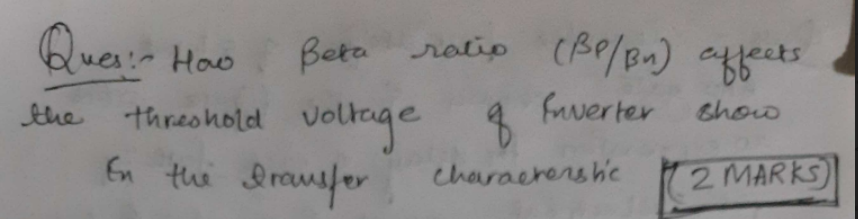 Ques:- How Beta ratio (βp/βn) affects
the threshold voltage of Inverter show
In the transfer characterstic (2 MARKS)